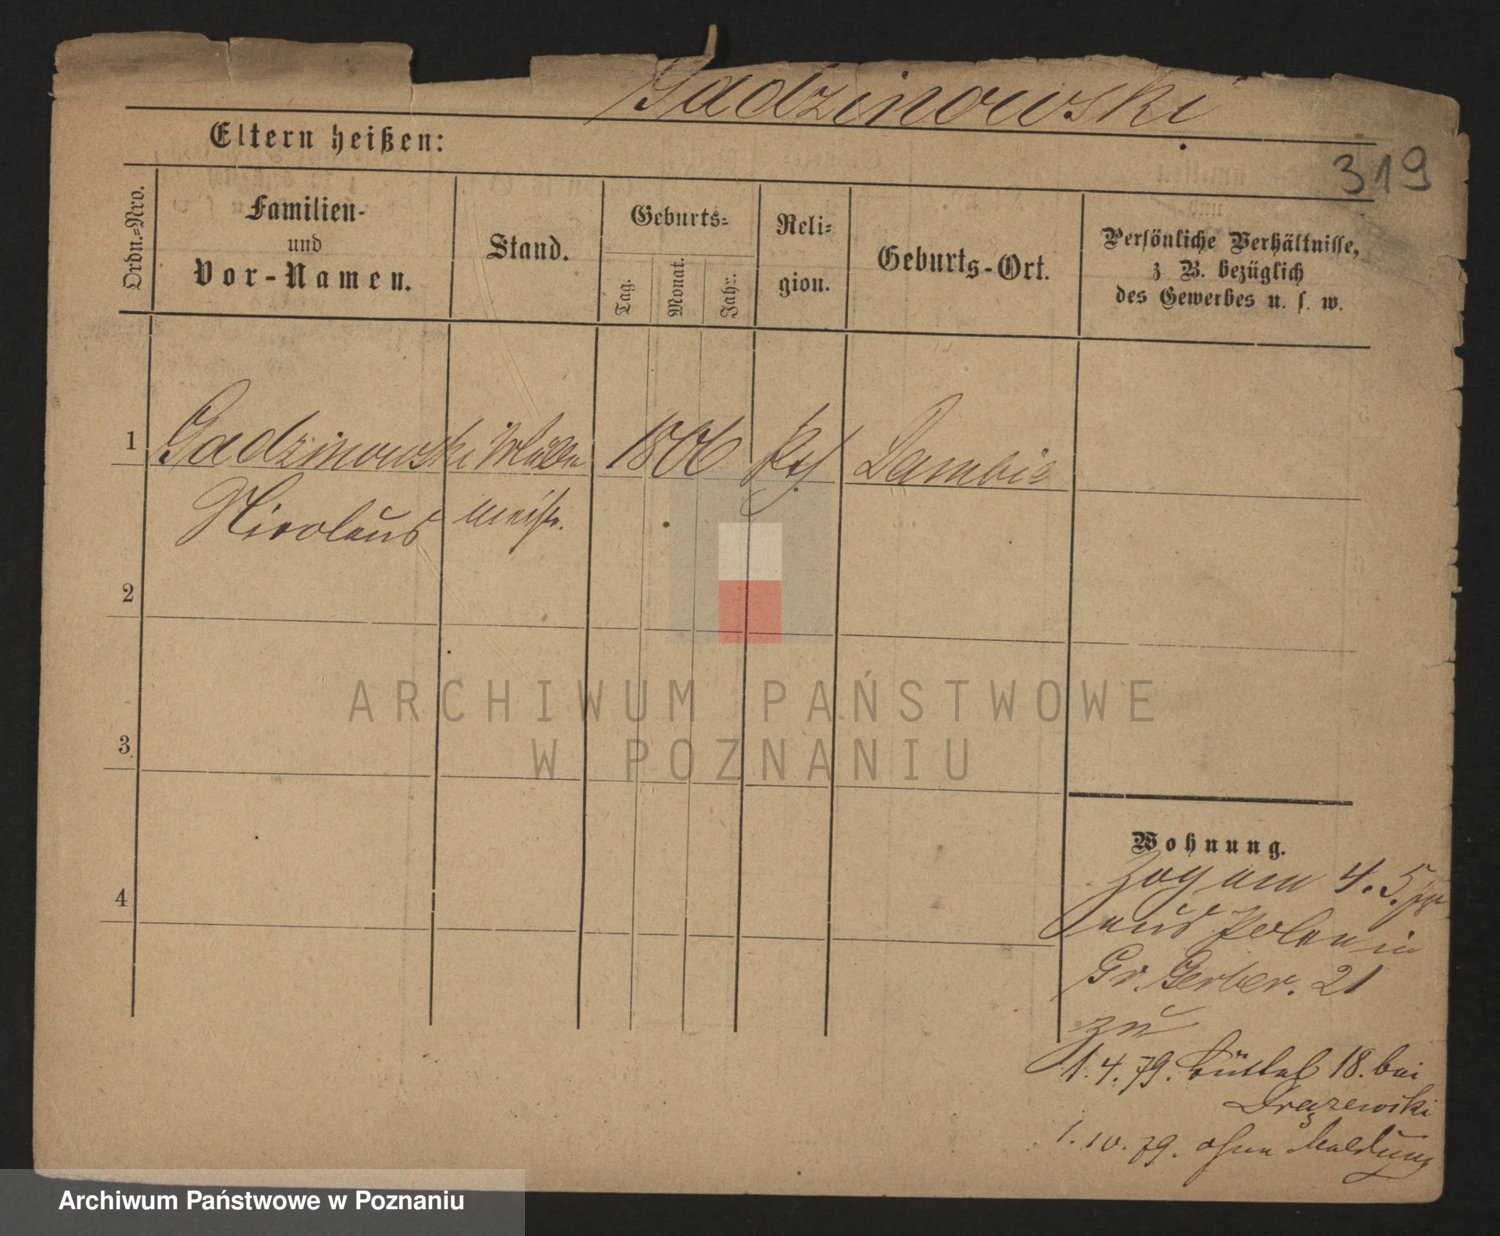 Gadzinowski
Eltern heißen:
319
Ordn.=Nro.
Familien-
und
Vor-Namen.
Stand.
Geburts=
Tag.
Monat.
Jahr.
Reli=
gion.
Geburts-Ort.
Persönliche Verhältnisse,
z B. bezüglich
des Gewerbes u. s. w.
1
Gadzinowski
1806
Dambie
Nicolaus
meistr.
2
ARCHIWUM PAŃSTWOWE
W POZNANIU
3
Wohnung.
zog am 4. 5.
4
aus Polen in
Gr. Gerber. 21
zu
1. 4. 79. Büttel 18. bei
Drązewski
1. 10. 79. ohne Meldung
Archiwum Państwowe w Poznaniu